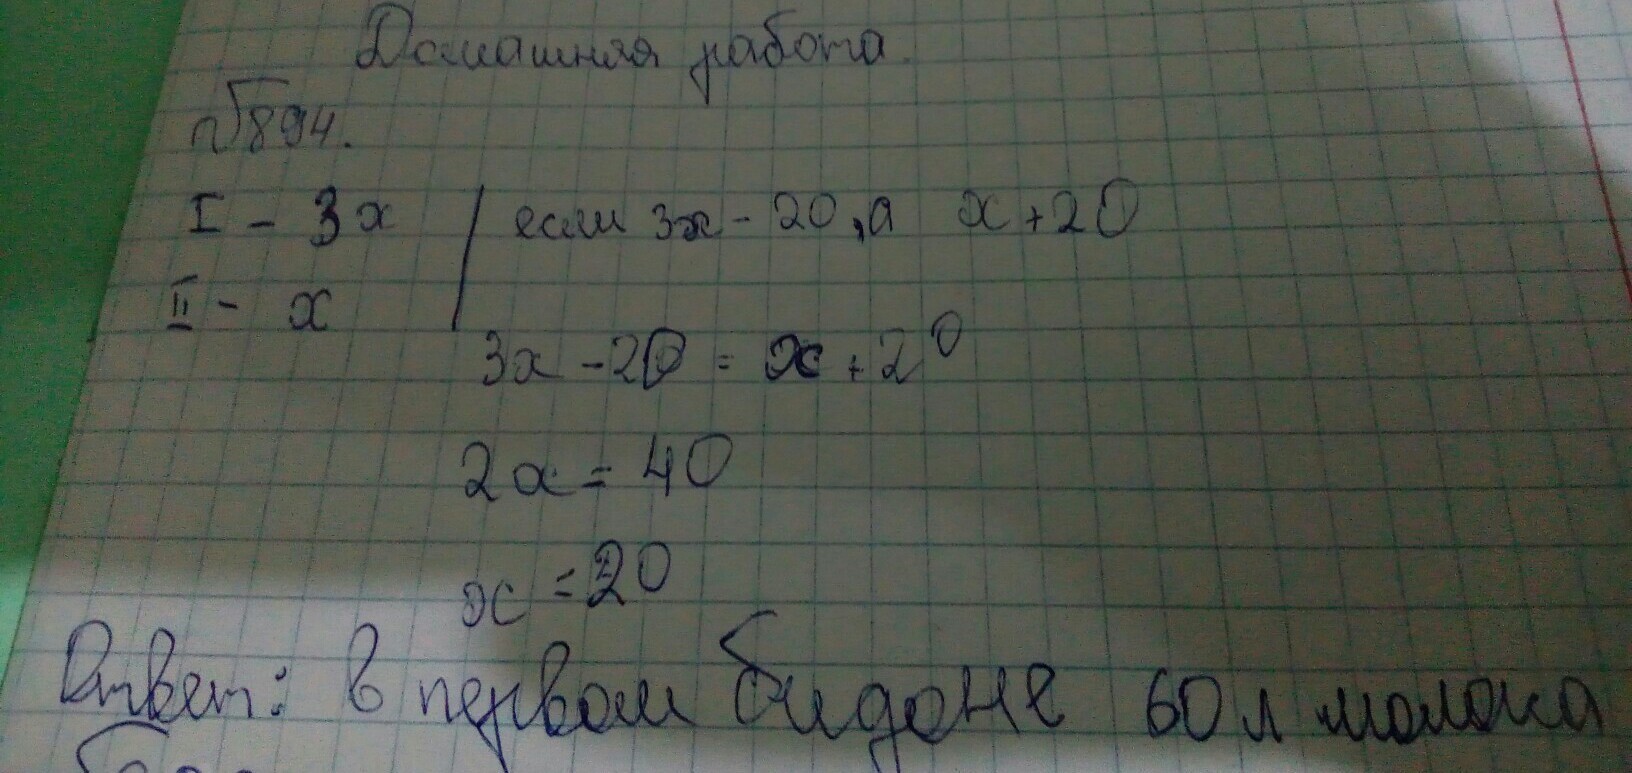 Домашняя работа.
№894.
I - 3x | если 3x - 20, а x + 20
II - x
3x - 20 = x + 20
2x = 40
x = 20
Ответ: в первом бидоне 60 л молока